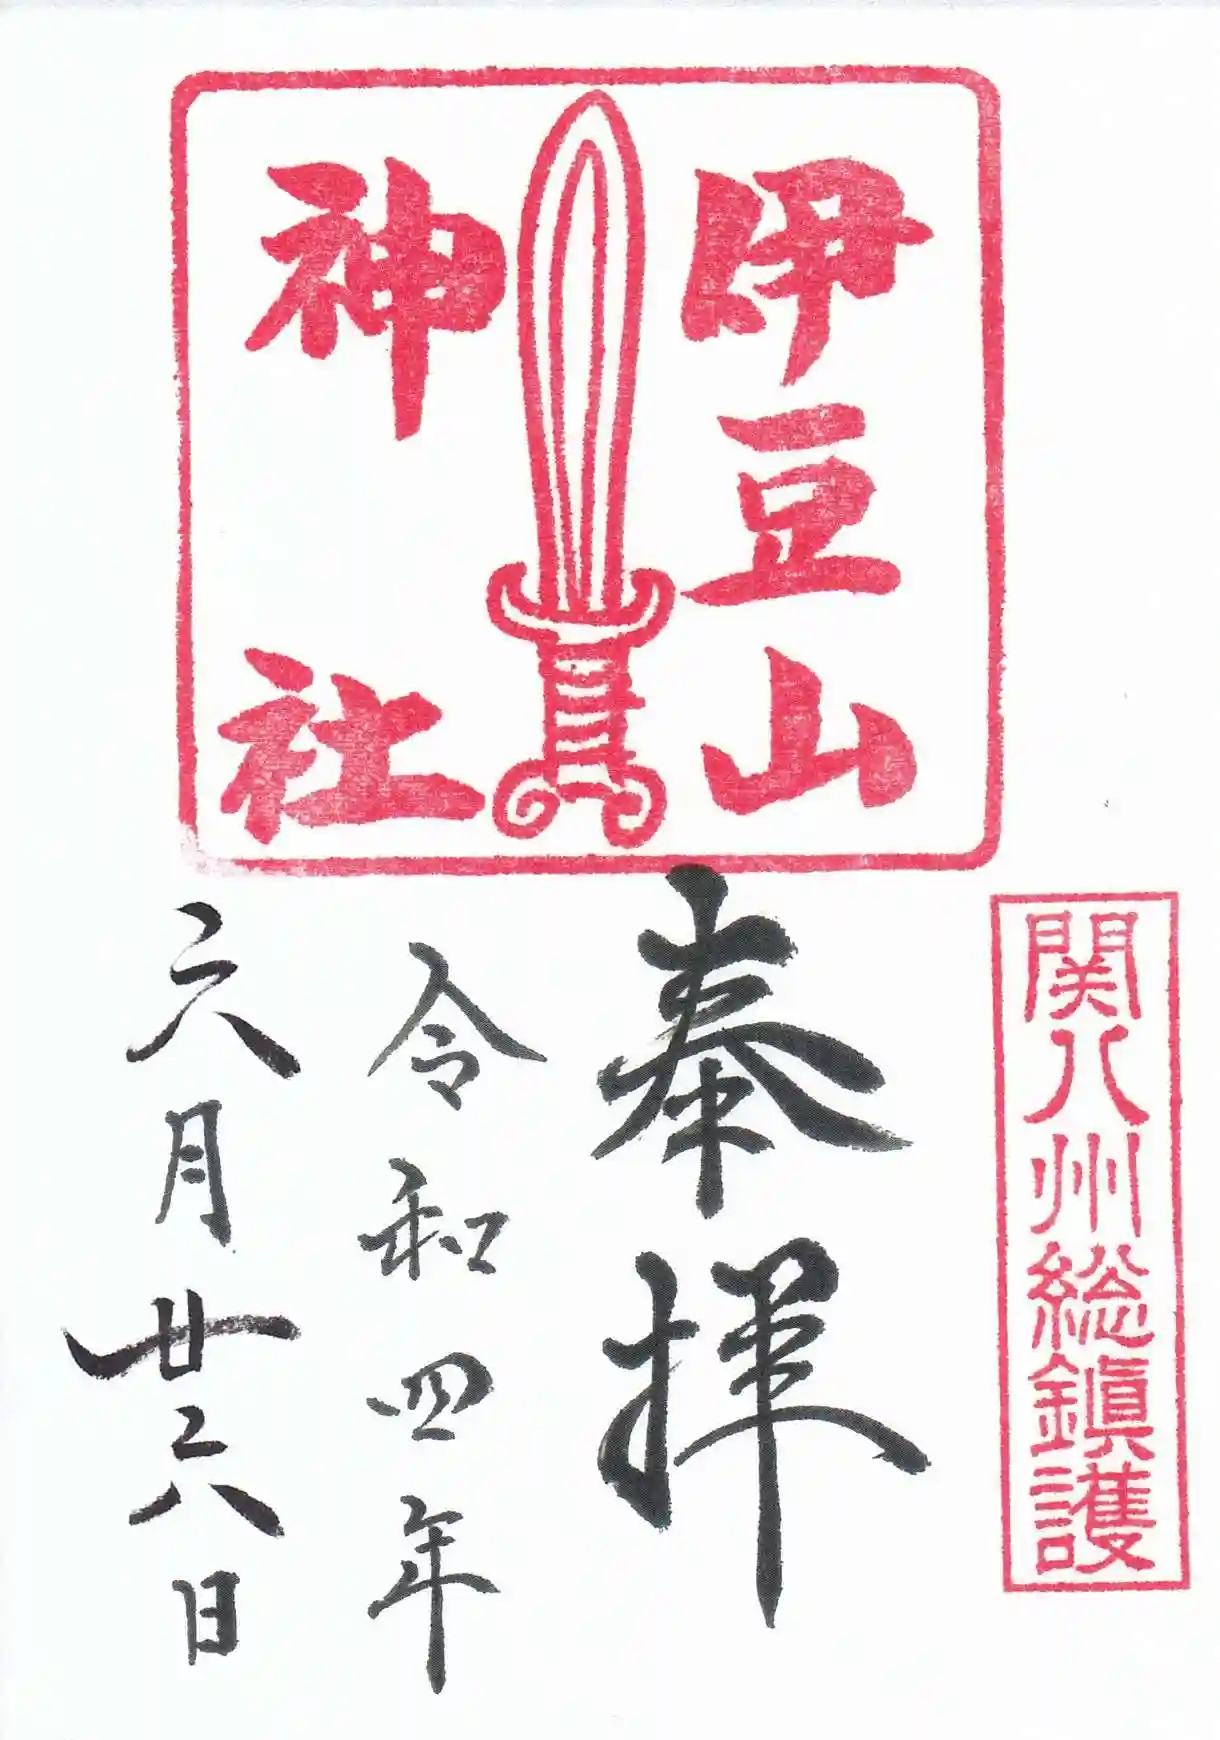 伊豆山
神社
関八州総鎮護
奉拝
令和四年
六月廿六日